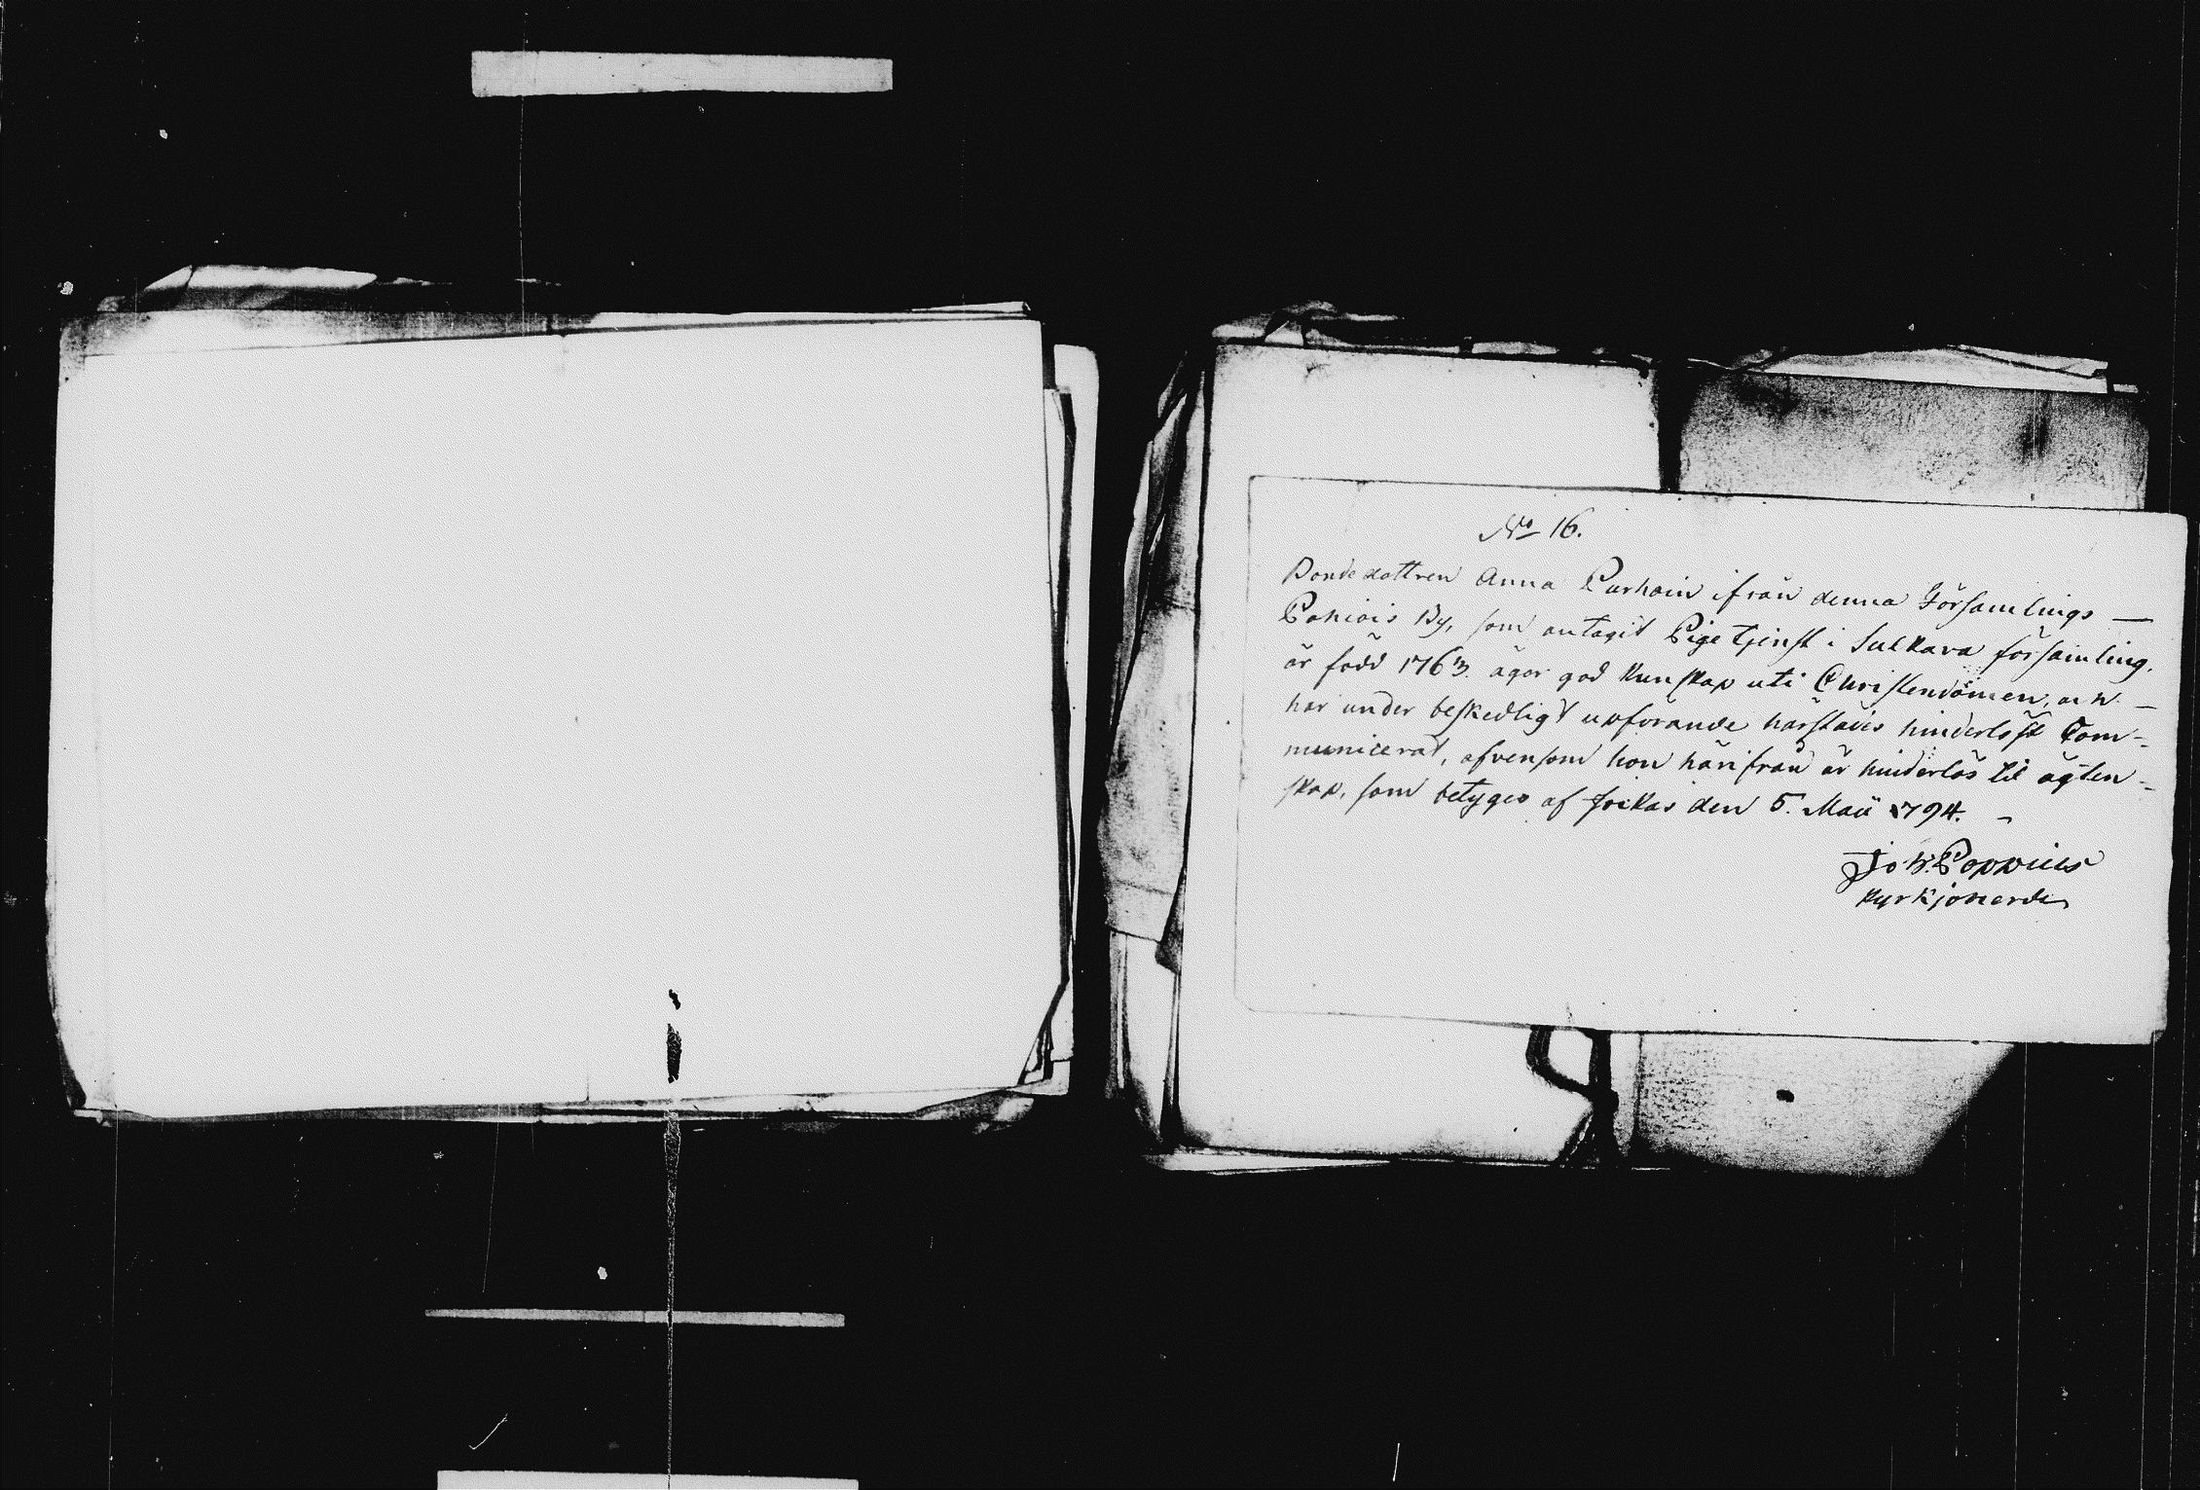 No 16.
Bondedottren Anna Purhoin ifrån denna Församlings —
Pohiois By, som antagit Pige tjenst i Sulkava församling.
är född 1763. äger god kunskap uti Christendomen, och —
har under beskedligt upförande härstädes hinderlöst Com-
municerat, äfvensom hon härifrån är hinderlös til ägten-
skap, som betyges af Jockas den 5. Maii 1794. —
Joh. Poppius
Kyrkjoherde